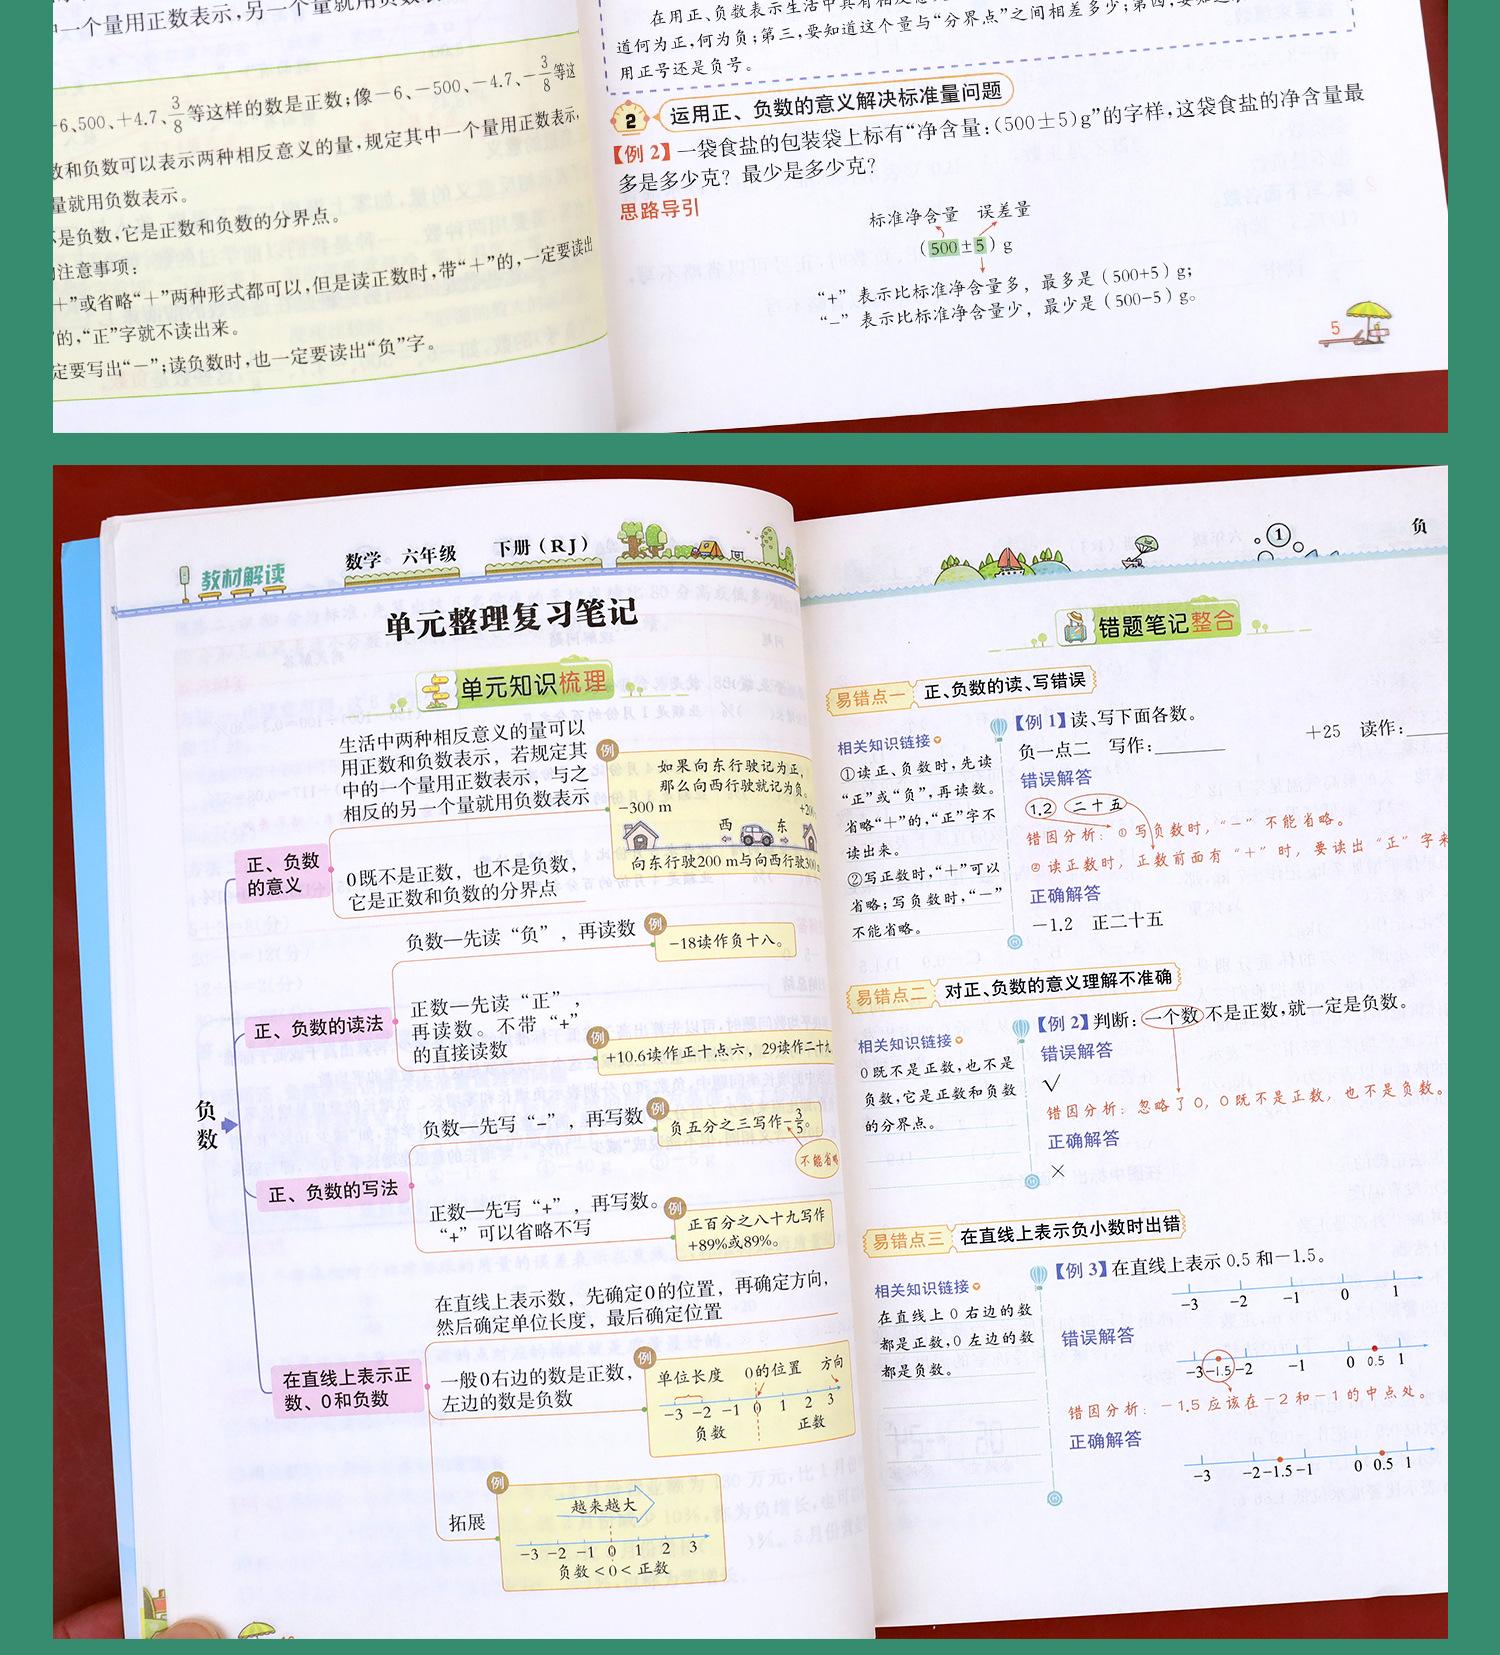 一个量用正数表示,另一个量就用负数
6、500、+4.7、3/8等这样的数是正数;像-6、-500、-4.7、-3/8等这
数和负数可以表示两种相反意义的量,规定其中一个量用正数表示,
量就用负数表示。
是负数,它是正数和负数的分界点。
注意事项:
+”或省略“+”两种形式都可以,但是读正数时,带“+”的,一定要读出
的,“正”字就不读出来。
定要写出“-”;读负数时,也一定要读出“负”字。
道何为正,何为负;第三,要知道这个量与“分界点”之间相差多少;第四,
用正号还是负号。
2 运用正、负数的意义解决标准量问题
【例 2】一袋食盐的包装袋上标有“净含量:(500±5)g”的字样,这袋食盐的净含量最
多是多少克? 最少是多少克?
思路导引
标准净含量 误差量
(500±5) g
“+” 表示比标准净含量多, 最多是 (500+5) g;
“-” 表示比标准净含量少, 最少是 (500-5) g。
5
教材解读 数学 六年级 下册(RJ)
单元整理复习笔记
单元知识梳理
负数
正、负数的意义
生活中两种相反意义的量可以
用正数和负数表示, 若规定其
中的一个量用正数表示, 与之
相反的另一个量就用负数表示
例
如果向东行驶记为正,
那么向西行驶就记为负。
-300 m
西 东
向东行驶200 m与向西行驶300
0既不是正数, 也不是负数,
它是正数和负数的分界点
正、负数的读法
负数—先读“负”, 再读数
例
-18读作负十八。
正数—先读“正”,
再读数。不带“+”
的直接读数
例
+10.6读作正十点六, 29读作二十九
正、负数的写法
负数—先写“-”, 再写数
例
负五分之三写作-3/5。
不能省略
正数—先写“+”, 再写数。
“+”可以省略不写
例
正百分之八十九写作
+89%或89%。
在直线上表示正
数、0和负数
在直线上表示数, 先确定0的位置, 再确定方向,
然后确定单位长度, 最后确定位置
一般0右边的数是正数,
左边的数是负数
例
单位长度 0的位置 方向
-3 -2 -1 0 1 2 3
负数 正数
拓展
例
越来越大
-3 -2 -1 0 1 2 3
负数<0<正数
1
负
错题笔记整合
易错点一 正、负数的读、写错误
相关知识链接
①读正、负数时,先读
“正”或“负”,再读数。
省略“+”的,“正”字不
读出来。
②写正数时,“+”可以
省略;写负数时,“-”
不能省略。
【例 1】读、写下面各数。
负一点二 写作:______ +25 读作:
错误解答
1.2 二十五
错因分析: ①写负数时, “-” 不能省略。
②读正数时, 正数前面有 “+” 时, 要读出 “正” 字来
正确解答
-1.2 正二十五
易错点二 对正、负数的意义理解不准确
相关知识链接
0既不是正数,也不是
负数,它是正数和负数
的分界点。
【例 2】判断:一个数不是正数,就一定是负数。
错误解答
√
错因分析: 忽略了0, 0既不是正数, 也不是负数。
正确解答
×
易错点三 在直线上表示负小数时出错
相关知识链接
在直线上0右边的数
都是正数,0左边的数
都是负数。
【例 3】在直线上表示 0.5 和-1.5。
-3 -2 -1 0 1
错误解答
-3 -1.5 -2 -1 0 0.5 1
错因分析: -1.5应该在-2和-1的中点处。
正确解答
-3 -2 -1.5 -1 0 0.5 1